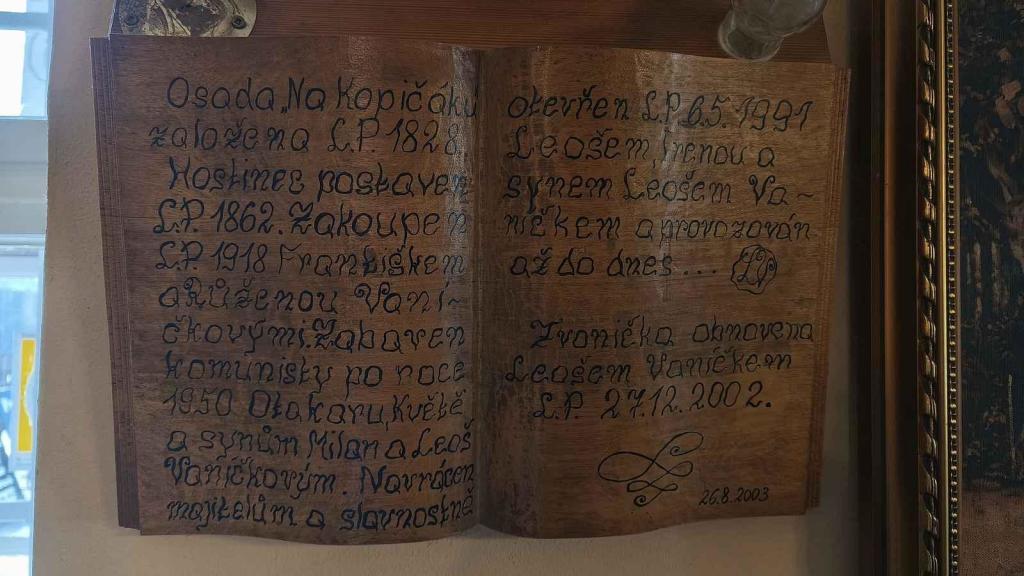 Osada „Na Kopičáku
založena L.P. 1828.
Hostinec postaven
L.P. 1862. Zakoupen
L.P. 1918 Františkem
a Růženou Vaní-
čkovými. Zabaven
komunisty po roce
1950 Otakaru, Květě
a synům Milan a Leoš
Vaníčkovým. Navrácen
majitelům a slavnostně
otevřen L.P. 6.5. 1991
Leošem, Irenou a
synem Leošem Va-
níčkem a provozován
až do dnes....
Zvonička obnovena
Leošem Vaníčkem
L.P. 27.12.2002.
26.8.2003